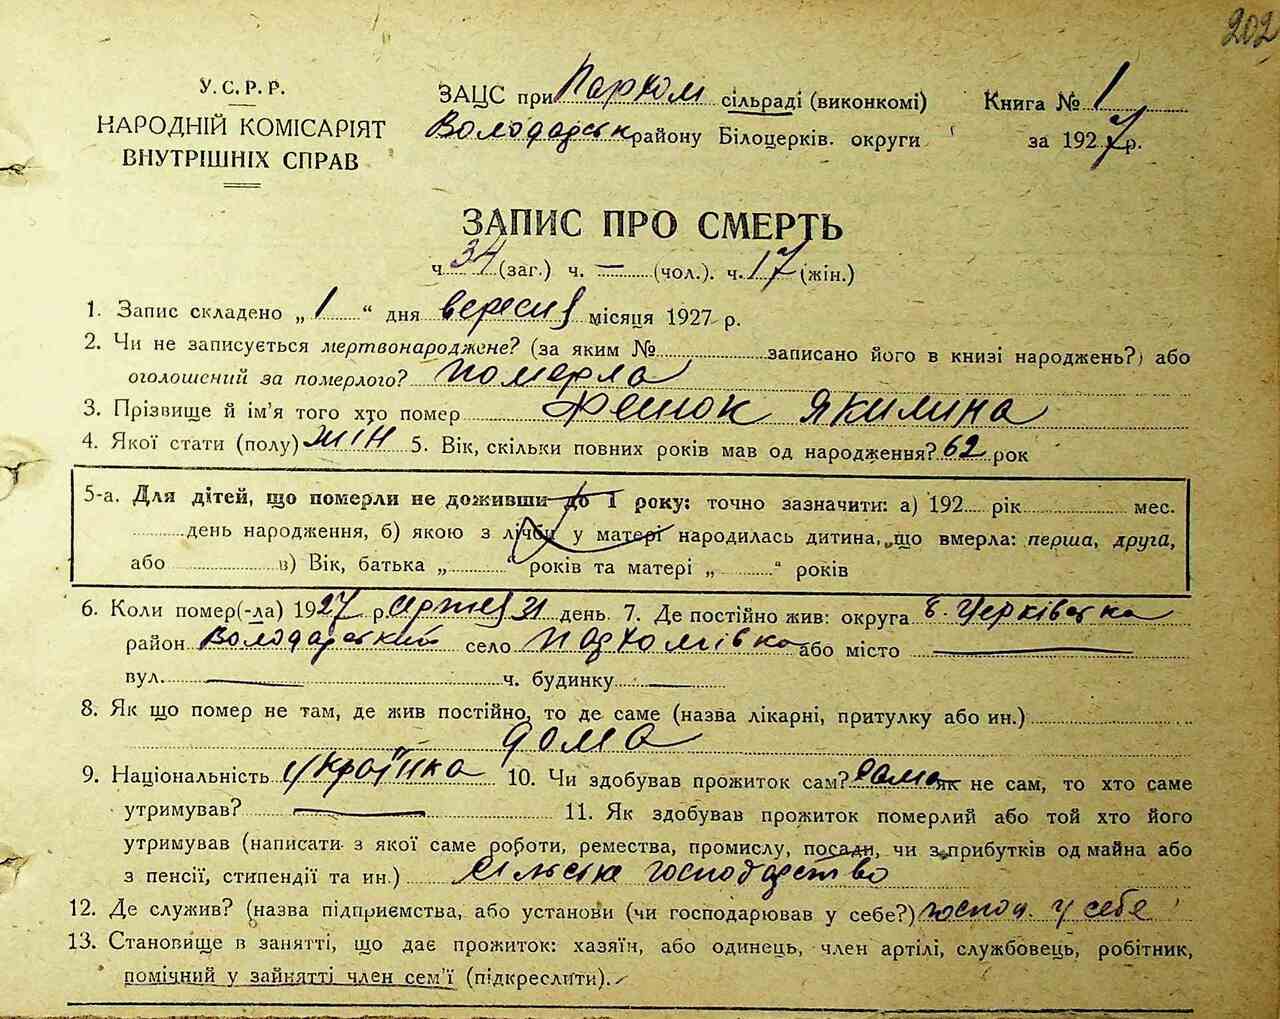 202
У.С.Р.Р.
НАРОДНІЙ КОМІСАРІЯТ
ВНУТРІШНІХ СПРАВ
ЗАЦС при Пархом сільраді (виконкомі) Книга № 1
Володарськ району Білоцерків. округи за 1927 р.
ЗАПИС ПРО СМЕРТЬ
ч. 34 (заг.) ч. — (чол.). ч. 17 (жін.)
1. Запис складено „ 1 “ дня вересня місяця 1927 р.
2. Чи не записується мертвонароджене? (за яким № записано його в книзі народжень?) або
оголошений за померлого? померла
3. Прізвище й ім'я того хто помер Якилина
4. Якої стати (полу) жін 5. Вік, скільки повних років мав од народження? 62 рок
5-а. Для дітей, що померли не доживши до 1 року: точно зазначити: а) 192 рік мес.
день народження, б) якою з лічби у матері народилась дитина, що вмерла: перша, друга,
або в) Вік, батька „ “ років та матері „ “ років
6. Коли помер(-ла) 1927 р. серпня 31 день. 7. Де постійно жив: округа б. Церківська
район Володарський село Пархомівка або місто —
вул. — ч. будинку —
8. Як що помер не там, де жив постійно, то де саме (назва лікарні, притулку або ин.)
дома
9. Національність українка 10. Чи здобував прожиток сам? сама як не сам, то хто саме
утримував? — 11. Як здобував прожиток померлий або той хто його
утримував (написати з якої саме роботи, ремества, промислу, посади, чи з прибутків од майна або
з пенсії, стипендії та ин.) сільське господарство
12. Де служив? (назва підприємства, або установи (чи господарював у себе?) господ. у себе
13. Становище в занятті, що дає прожиток: хазяїн, або одинець, член артілі, службовець, робітник,
помічний у зайнятті член сем'ї (підкреслити).